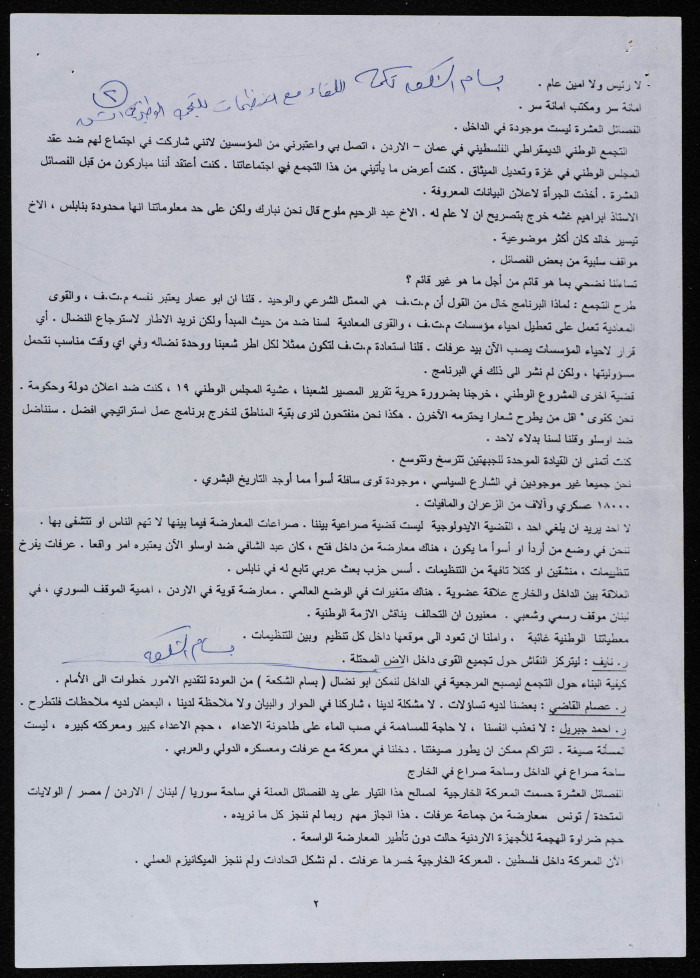 - لا رئيس ولا امين عام .
بسام الشكعه تكملة اللقاء مع التنظيمات
٢
امانة سر ومكتب امانة سر .
الفصائل العشرة ليست موجودة في الداخل .
التجمع الوطني الديمقراطي الفلسطيني في عمان – الاردن ، اتصل بي واعتبرني من المؤسسين لانني شاركت في اجتماع لهم ضد عقد
المجلس الوطني في غزة وتعديل الميثاق . كنت أعرض ما يأتيني من هذا التجمع في اجتماعاتنا . كنت أعتقد أننا مباركون من قبل الفصائل
العشرة . أخذت الجرأة لاعلان البيانات المعروفة .
الاستاذ ابراهيم غشه خرج بتصريح ان لا علم له . الاخ عبد الرحيم ملوح قال نحن نبارك ولكن على حد معلوماتنا انها محدودة بنابلس ، الاخ
تيسير خالد كان أكثر موضوعية .
مواقف سلبية من بعض الفصائل .
تساءلنا نضحي بما هو قائم من أجل ما هو غير قائم ؟
طرح التجمع : لماذا البرنامج خال من القول أن م.ت.ف هي الممثل الشرعي والوحيد . قلنا ان ابو عمار يعتبر نفسه م.ت.ف ، والقوى
المعادية تعمل على تعطيل احياء مؤسسات م.ت.ف ، والقوى المعادية لسنا ضد من حيث المبدأ ولكن نريد الاطار لاسترجاع النضال . أي
قرار لاحياء المؤسسات يصب الآن بيد عرفات . قلنا استعادة م.ت.ف لتكون ممثلا لكل اطر شعبنا ووحدة نضاله وفي اي وقت مناسب نتحمل
مسؤوليتها ، ولكن لم نشر الى ذلك في البرنامج .
قضية اخرى المشروع الوطني ، خرجنا بضرورة حرية تقرير المصير لشعبنا ، عشية المجلس الوطني ١٩ ، كنت ضد اعلان دولة وحكومة .
نحن كقوى ° اقل من يطرح شعارا يحترمه الآخرن . هكذا نحن منفتحون لنرى بقية المناطق لنخرج برنامج عمل استراتيجي افضل . سنناضل
ضد اوسلو وقلنا لسنا بدلاء لاحد .
كنت أتمنى ان القيادة الموحدة للجبهتين تترسخ وتتوسع .
نحن جميعا غير موجودين في الشارع السياسي ، موجودة قوى سافلة أسوأ مما أوجد التاريخ البشري .
١٨٠٠٠ عسكري وآلاف من الزعران والمافيات .
لا احد يريد ان يلغي احد ، القضية الايدولوجية ليست قضية صراعية بيننا . صراعات المعارضة فيما بينها لا تهم الناس او تتشفى بها .
نحن في وضع من أردأ او أسوأ ما يكون ، هناك معارضة من داخل فتح ، كان عبد الشافي ضد اوسلو الآن يعتبره امر واقعا . عرفات يفرخ
تنظيمات ، منشقين او كتلا تافهة من التنظيمات . أسس حزب بعث عربي تابع له في نابلس .
العلاقة بين الداخل والخارج علاقة عضوية . هناك متغيرات في الوضع العالمي . معارضة قوية في الاردن ، اهمية الموقف السوري ، في
لبنان موقف رسمي وشعبي . معنيون ان التحالف يناقش الازمة الوطنية .
معطياتنا الوطنية غائبة ، واملنا ان تعود الى موقعها داخل كل تنظيم وبين التنظيمات .
بسام الشكعه
ر. نايف : ليتركز النقاش حول تجميع القوى داخل الاض المحتلة .
كيفية البناء حول التجمع ليصبح المرجعية في الداخل لنمكن ابو نضال ( بسام الشكعة ) من العودة لتقديم الامور خطوات الى الأمام .
ر. عصام القاضي : بعضنا لديه تساؤلات . لا مشكلة لدينا ، شاركنا في الحوار والبيان ولا ملاحظة لدينا ، البعض لديه ملاحظات فلتطرح .
ر. احمد جبريل : لا نعذب انفسنا ، لا حاجة للمساهمة في صب الماء على طاحونة الاعداء ، حجم الاعداء كبير ومعركته كبيره ، ليست
المسألة صيغة . انتراكم ممكن ان يطور صيغتنا . دخلنا في معركة مع عرفات ومعسكره الدولي والعربي .
ساحة صراع في الداخل وساحة صراع في الخارج
الفصائل العشرة حسمت المعركة الخارجية لصالح هذا التيار على يد الفصائل العملة في ساحة سوريا / لبنان / الاردن / مصر / الولايات
المتحدة / تونس معارضة من جماعة عرفات . هذا انجاز مهم ربما لم ننجز كل ما نريده .
حجم ضراوة الهجمة للأجهزة الاردنية حالت دون تأطير المعارضة الواسعة .
الآن المعركة داخل فلسطين . المعركة الخارجية خسرها عرفات . لم نشكل اتحادات ولم ننجز الميكانيزم العملي .
٢